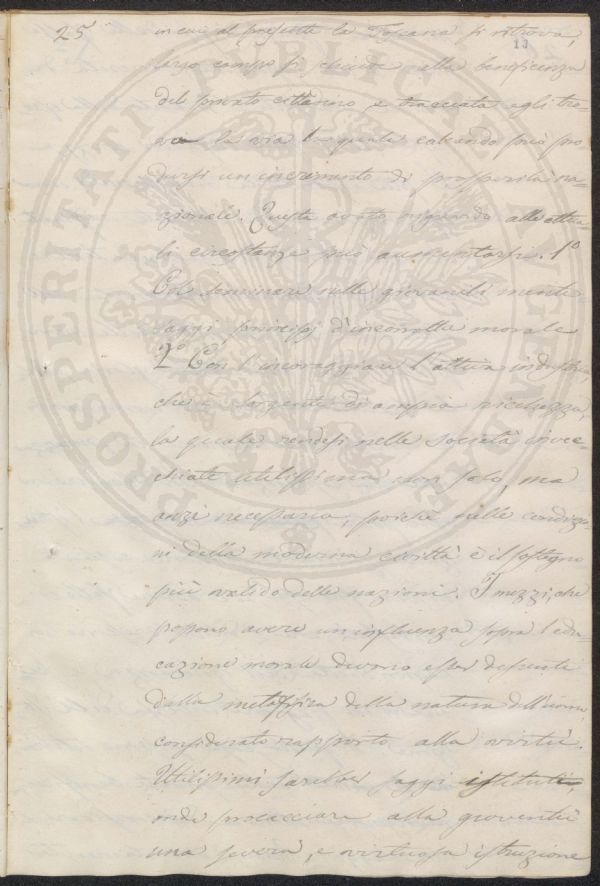 25
13
in cui al presente la Toscana si ritrova,
largo campo si chiude alla beneficenza
del privato cittadino, e tracciata egli tro-
va la via la quale calcando può pro-
dursi un incremento di prosperità na-
zionale. Questa avuto riguardo alle attua-
li circostanze può aumentarsi. 1º
Col seminare nelle giovanili menti
saggi principj d'incorrotta morale
2º Con l'incoraggiare l'attiva industria,
che è sorgente di ampia ricchezza,
la quale rendesi nelle società invec-
chiate utilissima non solo, ma
anzi necessaria, poichè nelle condizio-
ni della moderna civiltà è il sostegno
più valido delle nazioni. I mezzi, che
possono avere un influenza sopra l'edu-
cazione morale devono esser desunti
dalla metafisica della natura dell'uomo
considerato rapporto alla virtù.
Utilissimi sarebber saggi istituti,
onde procacciare alla gioventù
una severa, e virtuosa istruzione
PROSPERITATI PUBLICAE AUGENDAE